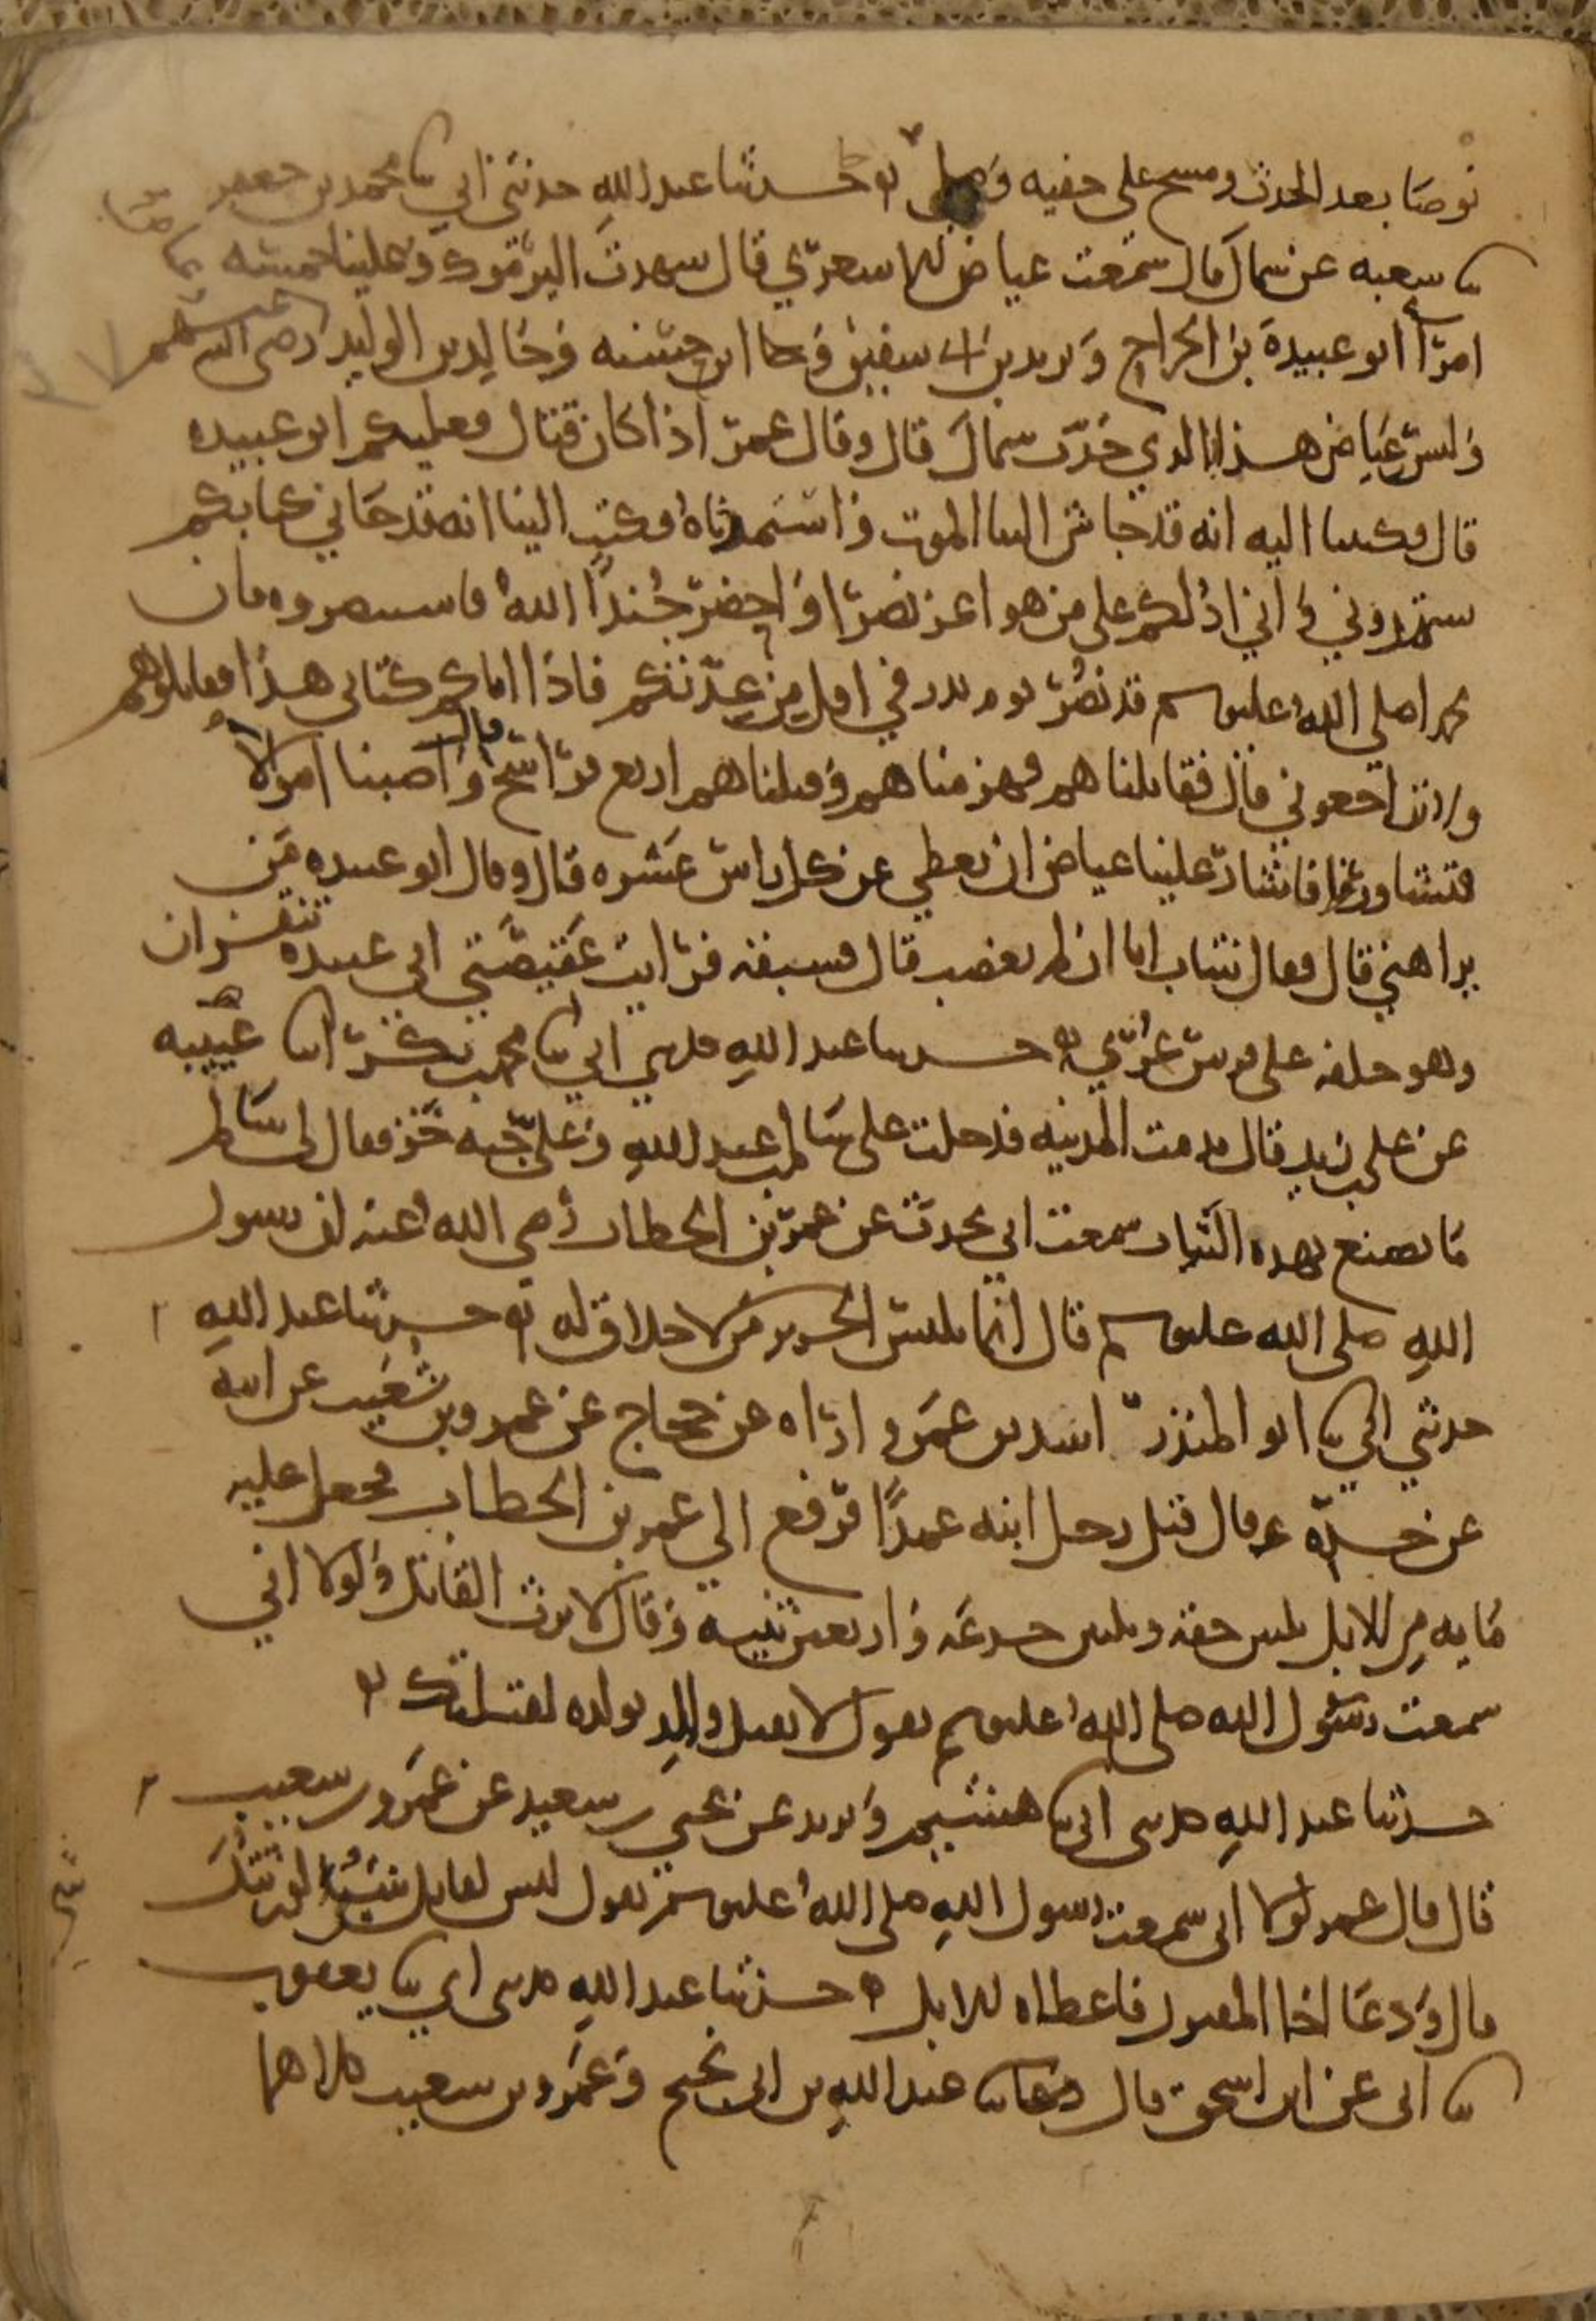 توضا بعد الحدث ومسح على خفيه وصلى حدثنا عبد الله حدثني ابي ثنا محمد بن جعفر
ثنا شعبه عن سماك قال سمعت عياض الاشعري قال شهدت اليرموك وعلينا خمسه
امرا ابو عبيدة بن الجراح ويزيد بن ابي سفين وابن حسنه وخالد بن الوليد وعياض رضي الله عنهم
وليس عياض هذا بالذي حدث سماك قال وقال عمر اذا كان قتال فعليكم ابو عبيده
قال فكتبنا اليه انه قد جاش الينا الموت واستمددناه فكتب الينا انه قد جاني كتابكم
تستمدوني واني ادلكم على من هو اعز نصرا واحضر جندا الله فاستنصروه فان
محمدا صلى الله عليه وسلم قد نصر يوم بدر في اقل من عدتكم فاذا اتاكم كتابي هذا فقاتلوهم
ولا تراجعوني قال فقاتلناهم فهزمناهم وقتلناهم اربع فراسخ قال واصبنا اموالا
فتشاوروا فاشار علينا عياض ان نعطي عن كل راس عشره قال وقال ابو عبيده من
يراهني قال فقال شاب انا ان لم تغضب قال فسبقه فرايت عقيصتي ابي عبيده تنقزان
وهو خلفه على فرس عري حدثنا عبد الله حدثني ابي ثنا محمد بن بكر انا عيينه
عن علي بن زيد قال قدمت المدينه فدخلت على سالم بن عبد الله وعلي جبه خز فقال لي سالم
ما تصنع بهذه الثياب سمعت ابي يحدث عن عمر بن الخطاب رضي الله عنه ان رسول
الله صلى الله عليه وسلم قال انما يلبس الحرير من لا خلاق له حدثنا عبد الله
حدثني ابي ثنا ابو المنذر اسد بن عمرو اراه عن حجاج عن عمرو بن شعيب عن ابيه
عن جده قال قتل رجل ابنه عمدا فرفع الى عمر بن الخطاب فجعل عليه
مايه من الابل ثلثين حقه وثلثين جذعه واربعين ثنيه وقال لا يرث القاتل ولولا اني
سمعت رسول الله صلى الله عليه وسلم يقول لا يقتل والد بولده لقتلتك
حدثنا عبد الله حدثني ابي ثنا هشيم ويزيد عن يحيى بن سعيد عن عمرو بن شعيب
قال قال عمر لولا اني سمعت رسول الله صلى الله عليه وسلم يقول ليس لقاتل شي لورثتك
قال ودعا اخا المقتول فاعطاه الابل حدثنا عبد الله حدثني ابي ثنا يعقوب
ثنا ابي عن ابن اسحق قال حدثنا عبد الله بن ابي نجيح وعمرو بن شعيب كلاهما